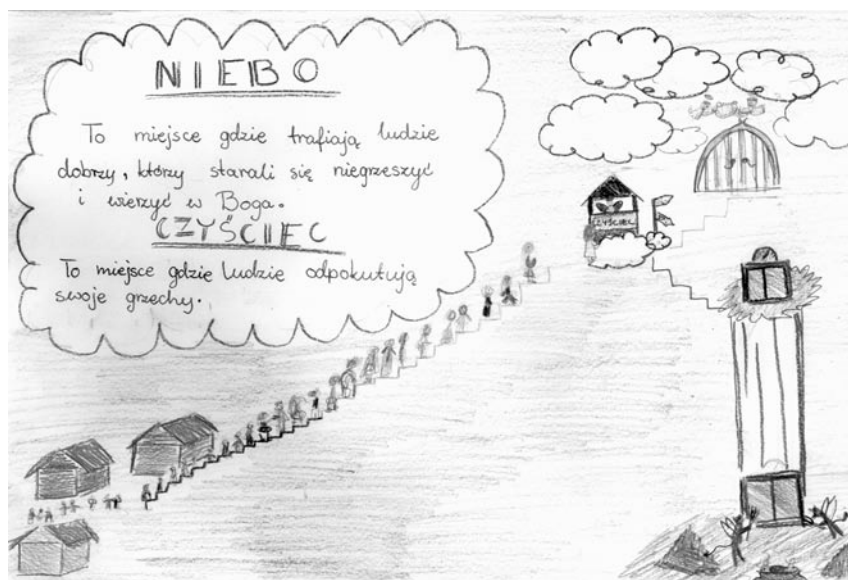 NIEBO
To miejsce gdzie trafiają ludzie
dobrzy, którzy starali się niegrzeszyć
i wierzyć w Boga.
CZYŚCIEC
To miejsce gdzie ludzie odpokutują
swoje grzechy.
CZYŚCIEC